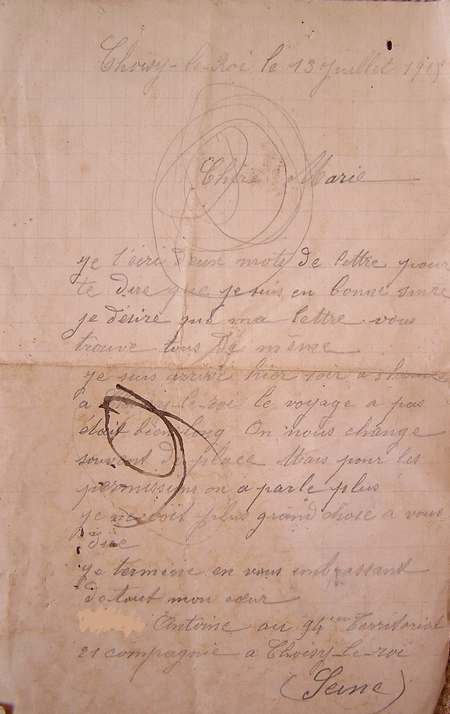 Choisy-le-Roi le 13 juillet 191
Chère Marie
je t'écri deux mots de lettre pour
te dire que je suis en bonne
je désire que ma lettre vous
trouve tous de meme
je suis arrivé hier soir a
a Choisy-le-roi le voyage a pas
était bien long On nous change
souvent de place Mais pour les
permissions on a parle plus
je plus grand chose a vous
dire
je termine en vous embrassant
de tout mon cœur
Antoine au 94em Territorial
21 compagnie a Choisy-le-roi
(Seine)